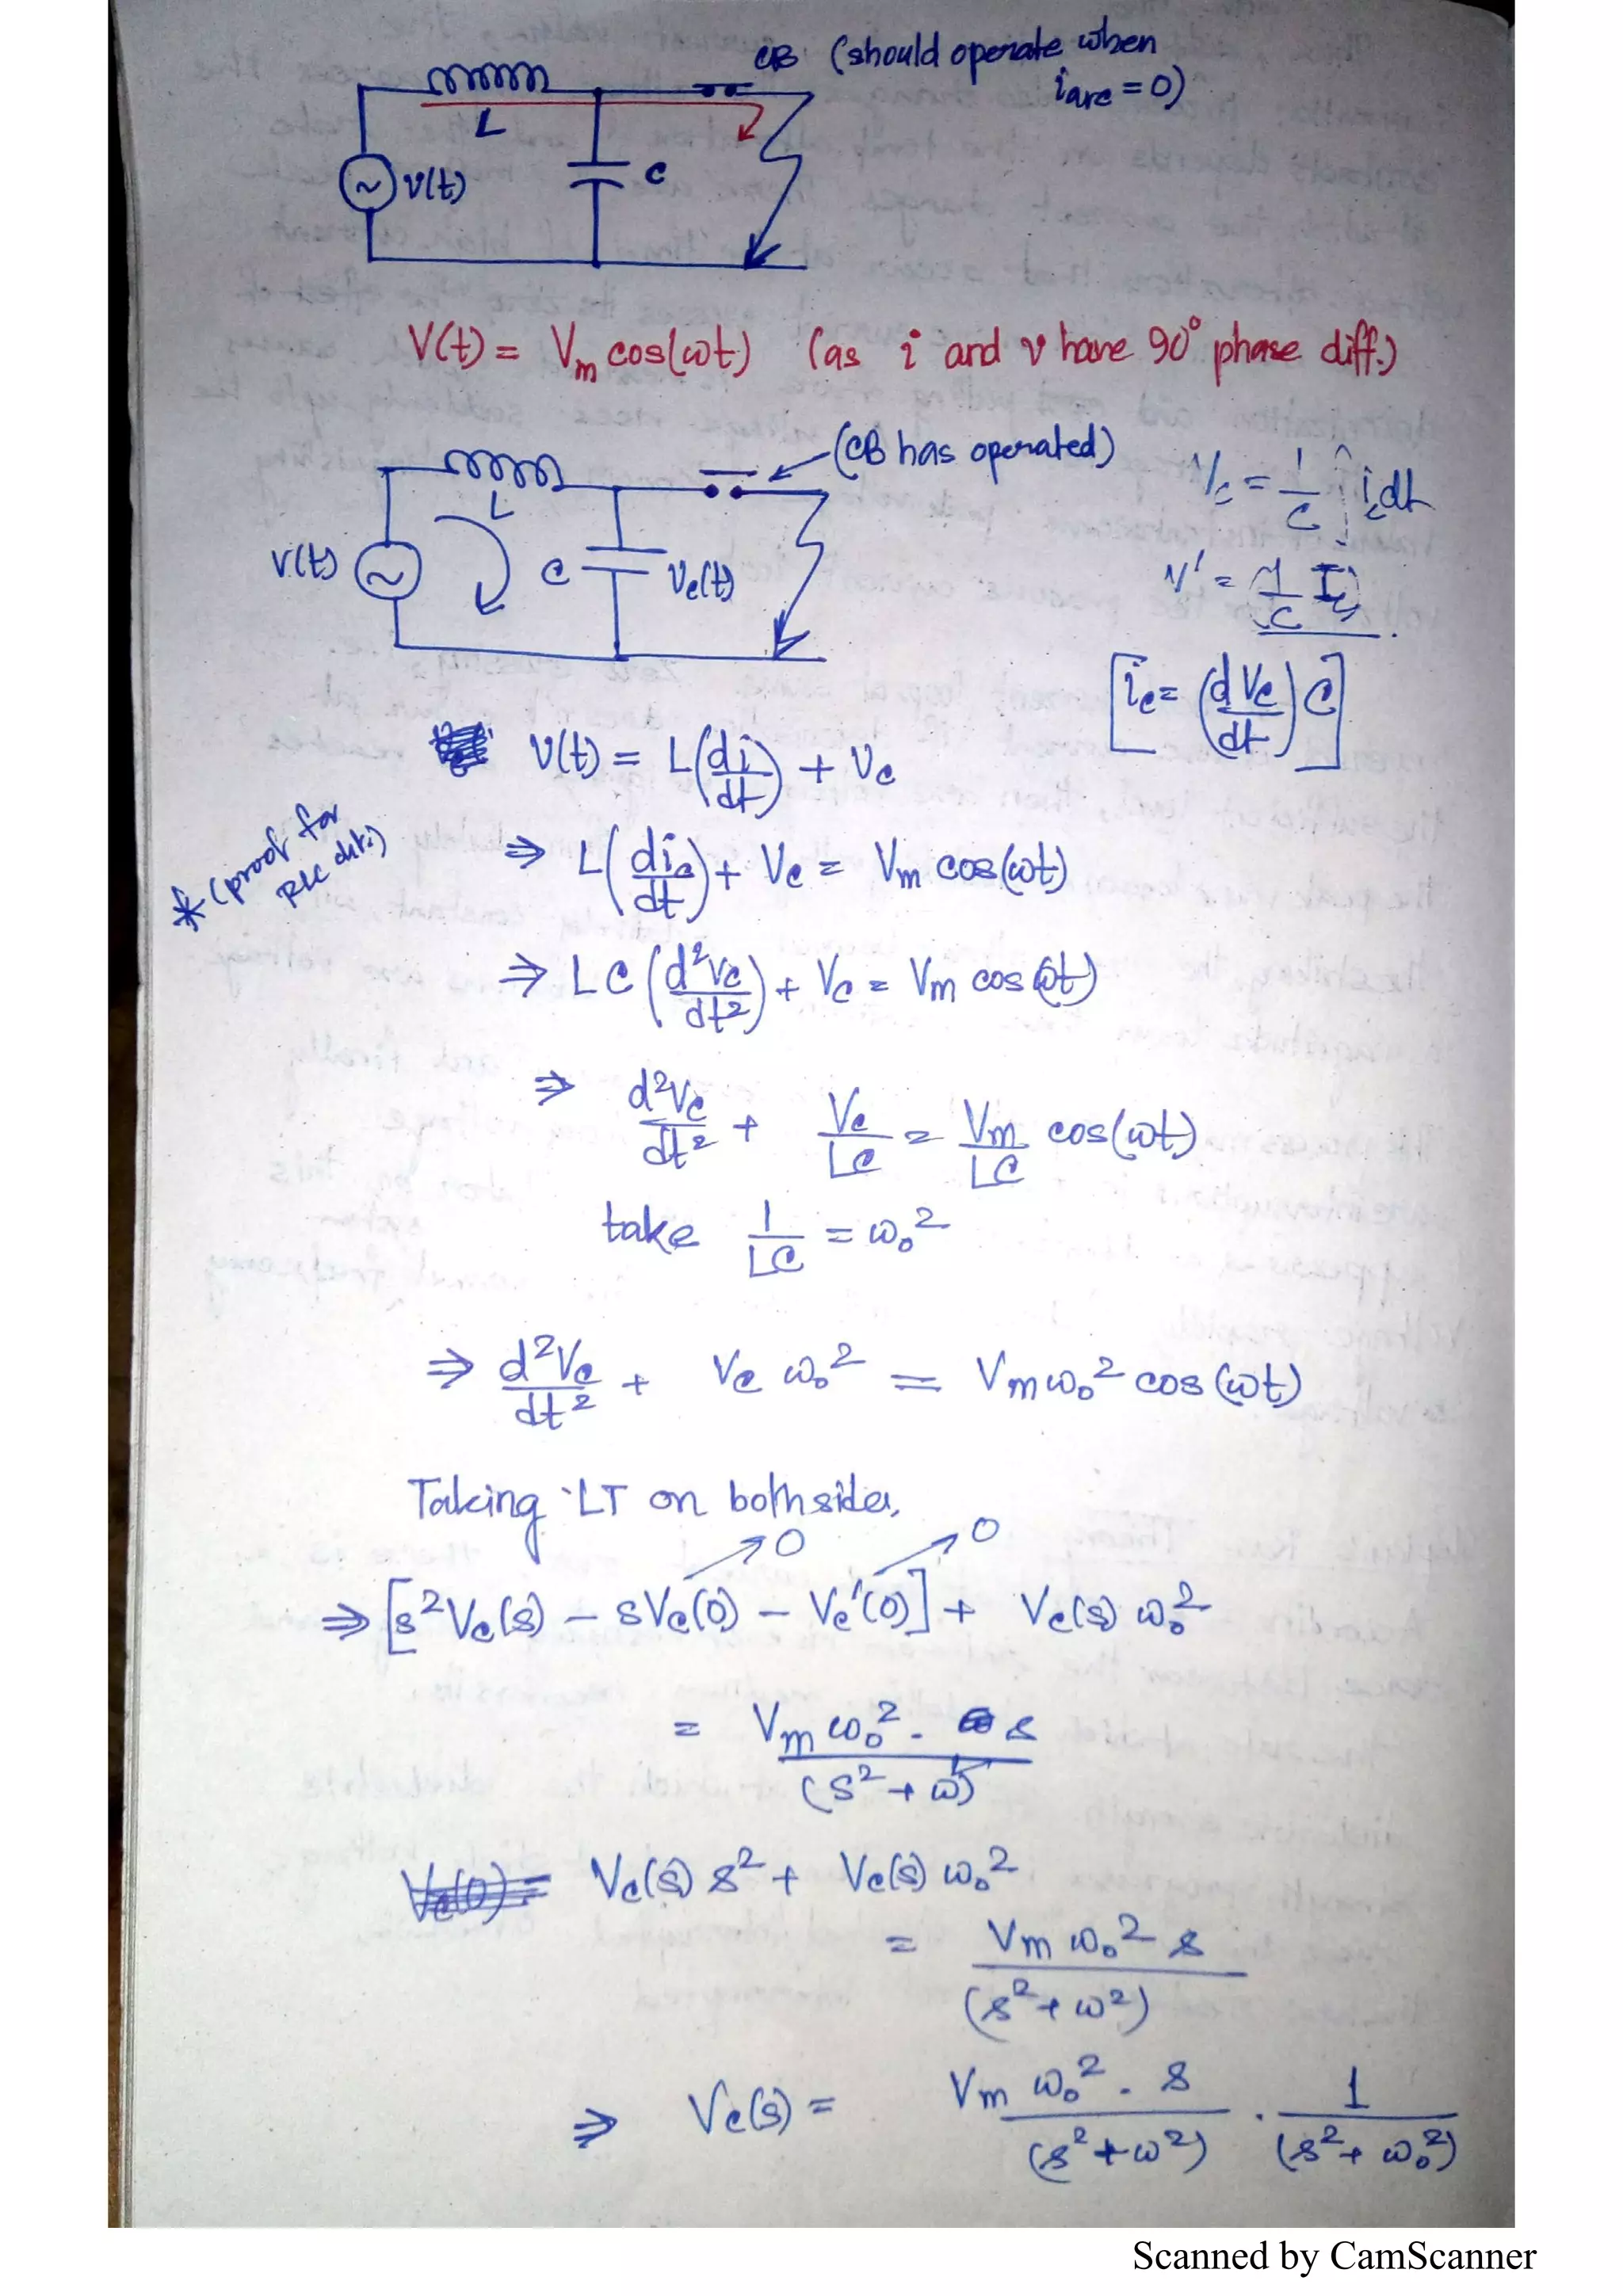 CB (should operate when
i_arc = 0)
L
v(t)
C
V(t) = Vm cos(ωt) (as i and v have 90° phase diff.)
(CB has operated)
L
V(t)
C
Vc(t)
Vc = 1/C ∫ ic dt
v' = 1/C Ic
[ic = (dVc/dt) C]
V(t) = L(di/dt) + Vc
* (proof for
RLC ckt.)
⇒ L(dic/dt) + Vc = Vm cos(ωt)
⇒ LC (d²Vc/dt²) + Vc = Vm cos(ωt)
⇒ d²Vc/dt² + Vc/LC = Vm/LC cos(ωt)
take 1/LC = ω₀²
⇒ d²Vc/dt² + Vc ω₀² = Vm ω₀² cos(ωt)
Taking LT on both sides,
0 0
⇒ [s²Vc(s) − sVc(0) − Vc'(0)] + Vc(s) ω₀²
= Vm ω₀² . s / (s² + ω)
Vc(s) s² + Vc(s) ω₀²
= Vm ω₀² s / (s² + ω²)
⇒ Vc(s) = Vm ω₀² . s / (s² + ω²) . 1 / (s² + ω₀²)
Scanned by CamScanner